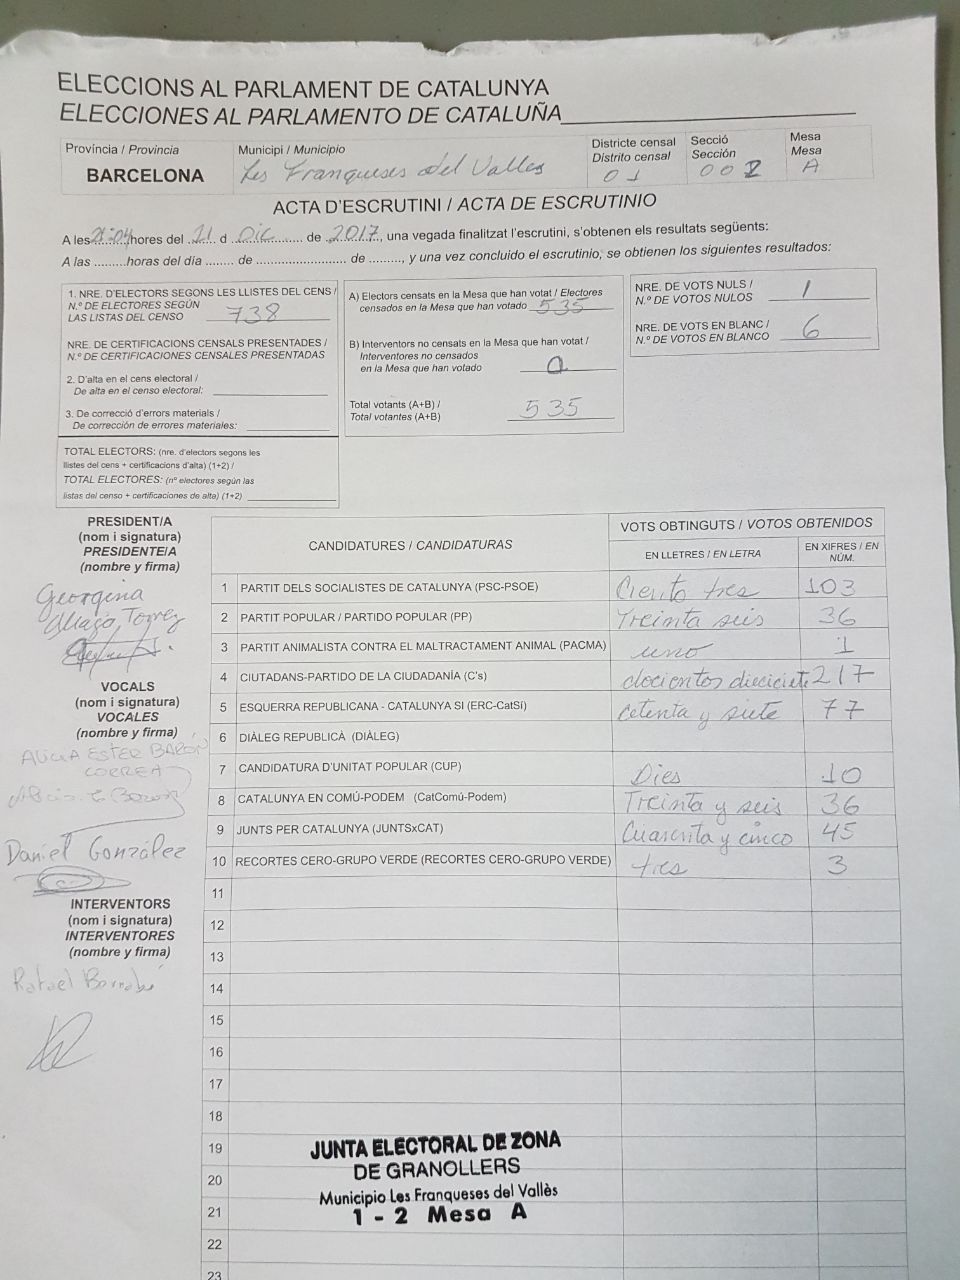 ELECCIONS AL PARLAMENT DE CATALUNYA
ELECCIONES AL PARLAMENTO DE CATALUÑA
Província / Provincia
BARCELONA
Municipi / Municipio
Les Franqueses del Valles
Districte censal
Distrito censal
01
Secció
Sección
002
Mesa
Mesa
A
ACTA D'ESCRUTINI / ACTA DE ESCRUTINIO
A les 21:04 hores del 21 d Dic de 2017, una vegada finalitzat l'escrutini, s'obtenen els resultats següents:
A las ......... horas del día ........ de .......................... de ........., y una vez concluido el escrutinio, se obtienen los siguientes resultados:
1. NRE. D'ELECTORS SEGONS LES LLISTES DEL CENS /
N.º DE ELECTORES SEGÚN
LAS LISTAS DEL CENSO 738
NRE. DE CERTIFICACIONS CENSALS PRESENTADES /
N.º DE CERTIFICACIONES CENSALES PRESENTADAS
2. D'alta en el cens electoral /
De alta en el censo electoral:
3. De correcció d'errors materials /
De corrección de errores materiales:
TOTAL ELECTORS: (nre. d'electors segons les
llistes del cens + certificacions d'alta) (1+2) /
TOTAL ELECTORES: (nº electores según las
listas del censo + certificaciones de alta) (1+2)
A) Electors censats en la Mesa que han votat / Electores
censados en la Mesa que han votado 535
B) Interventors no censats en la Mesa que han votat /
Interventores no censados
en la Mesa que han votado 0
Total votants (A+B) /
Total votantes (A+B) 535
NRE. DE VOTS NULS /
N.º DE VOTOS NULOS 1
NRE. DE VOTS EN BLANC /
N.º DE VOTOS EN BLANCO 6
PRESIDENT/A
(nom i signatura)
PRESIDENTE/A
(nombre y firma)
Georgina
Aliaga Torrez
VOCALS
(nom i signatura)
VOCALES
(nombre y firma)
ALICIA ESTER BARON
CORREA
Daniel González
INTERVENTORS
(nom i signatura)
INTERVENTORES
(nombre y firma)
Rafael Bernabé
CANDIDATURES / CANDIDATURAS
VOTS OBTINGUTS / VOTOS OBTENIDOS
EN LLETRES / EN LETRA
EN XIFRES / EN NÚM.
1 PARTIT DELS SOCIALISTES DE CATALUNYA (PSC-PSOE) Ciento tres 103
2 PARTIT POPULAR / PARTIDO POPULAR (PP) Treinta seis 36
3 PARTIT ANIMALISTA CONTRA EL MALTRACTAMENT ANIMAL (PACMA) uno 1
4 CIUTADANS-PARTIDO DE LA CIUDADANÍA (C's) docientos diecisiete 217
5 ESQUERRA REPUBLICANA - CATALUNYA SI (ERC-CatSí) cetenta y siete 77
6 DIÀLEG REPUBLICÀ (DIÀLEG)
7 CANDIDATURA D'UNITAT POPULAR (CUP) Dies 10
8 CATALUNYA EN COMÚ-PODEM (CatComú-Podem) Treinta y seis 36
9 JUNTS PER CATALUNYA (JUNTSxCAT) Cuarenta y cinco 45
10 RECORTES CERO-GRUPO VERDE (RECORTES CERO-GRUPO VERDE) tres 3
11
12
13
14
15
16
17
18
19
20
21
22
23
JUNTA ELECTORAL DE ZONA
DE GRANOLLERS
Municipio Les Franqueses del Vallès
1 - 2 Mesa A